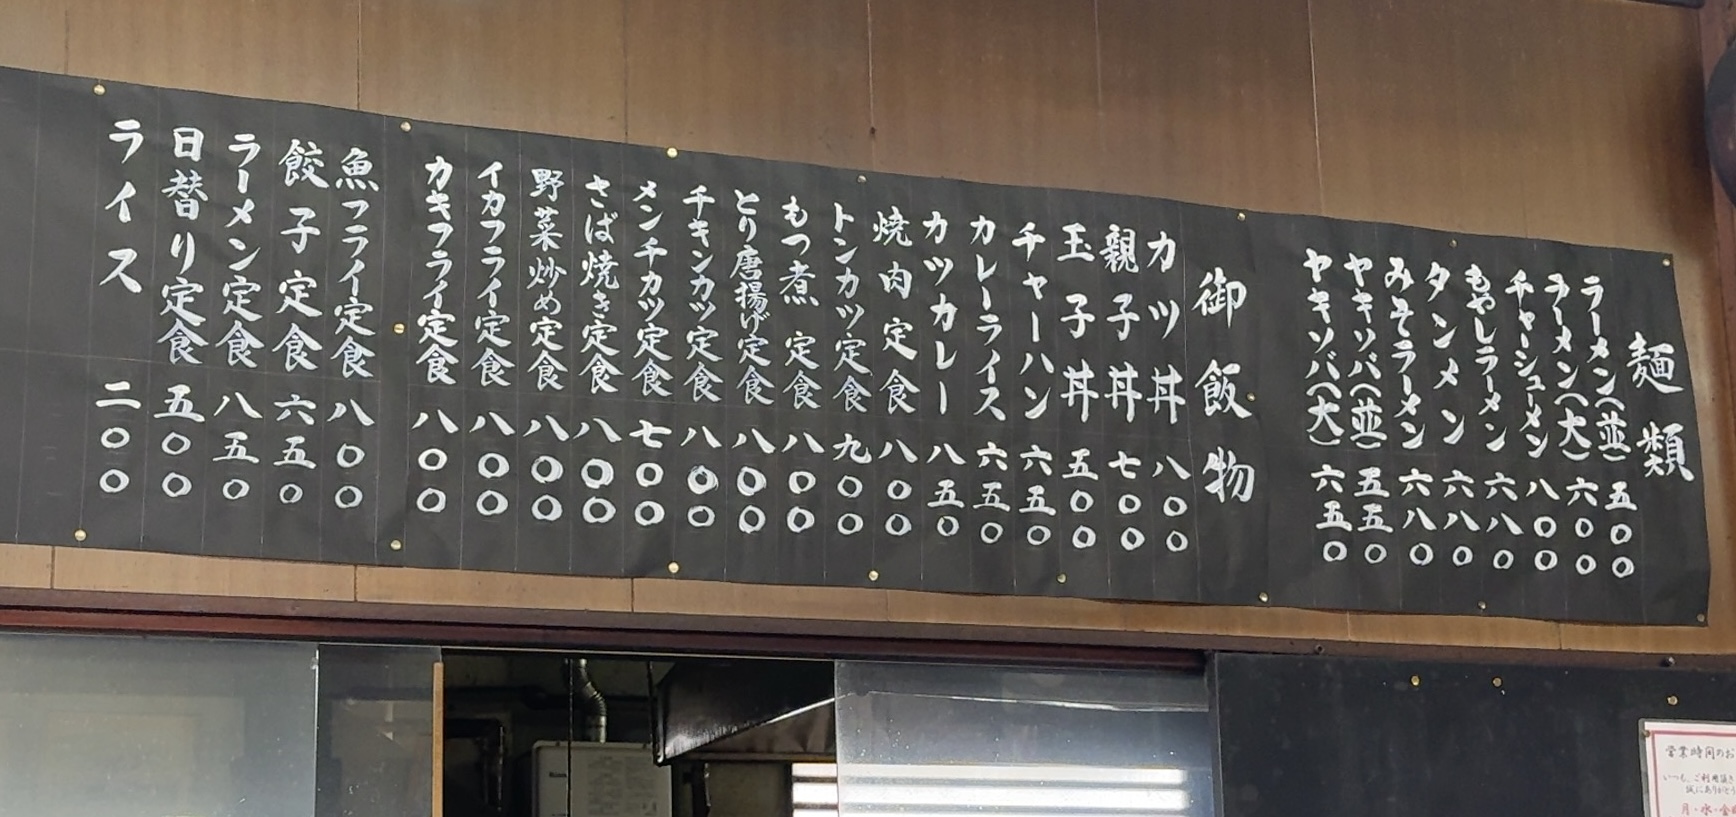 麺類
ラーメン(並) 五〇〇
ラーメン(大) 六〇〇
チャーシューメン 八〇〇
もやしラーメン 六八〇
タンメン 六八〇
みそラーメン 六八〇
ヤキソバ(並) 五五〇
ヤキソバ(大) 六五〇
御飯物
カツ丼 八〇〇
親子丼 七〇〇
玉子丼 五〇〇
チャーハン 六五〇
カレーライス 六五〇
カツカレー 八五〇
焼肉定食 八〇〇
トンカツ定食 九〇〇
もつ煮定食 八〇〇
とり唐揚げ定食 八〇〇
チキンカツ定食 八〇〇
メンチカツ定食 七〇〇
さば焼き定食 八〇〇
野菜炒め定食 八〇〇
イカフライ定食 八〇〇
カキフライ定食 八〇〇
魚フライ定食 八〇〇
餃子定食 六五〇
ラーメン定食 八五〇
日替り定食 五〇〇
ライス 二〇〇
営業時間のお
いつも、ご利用頂き
誠にありがとう
月・水・金